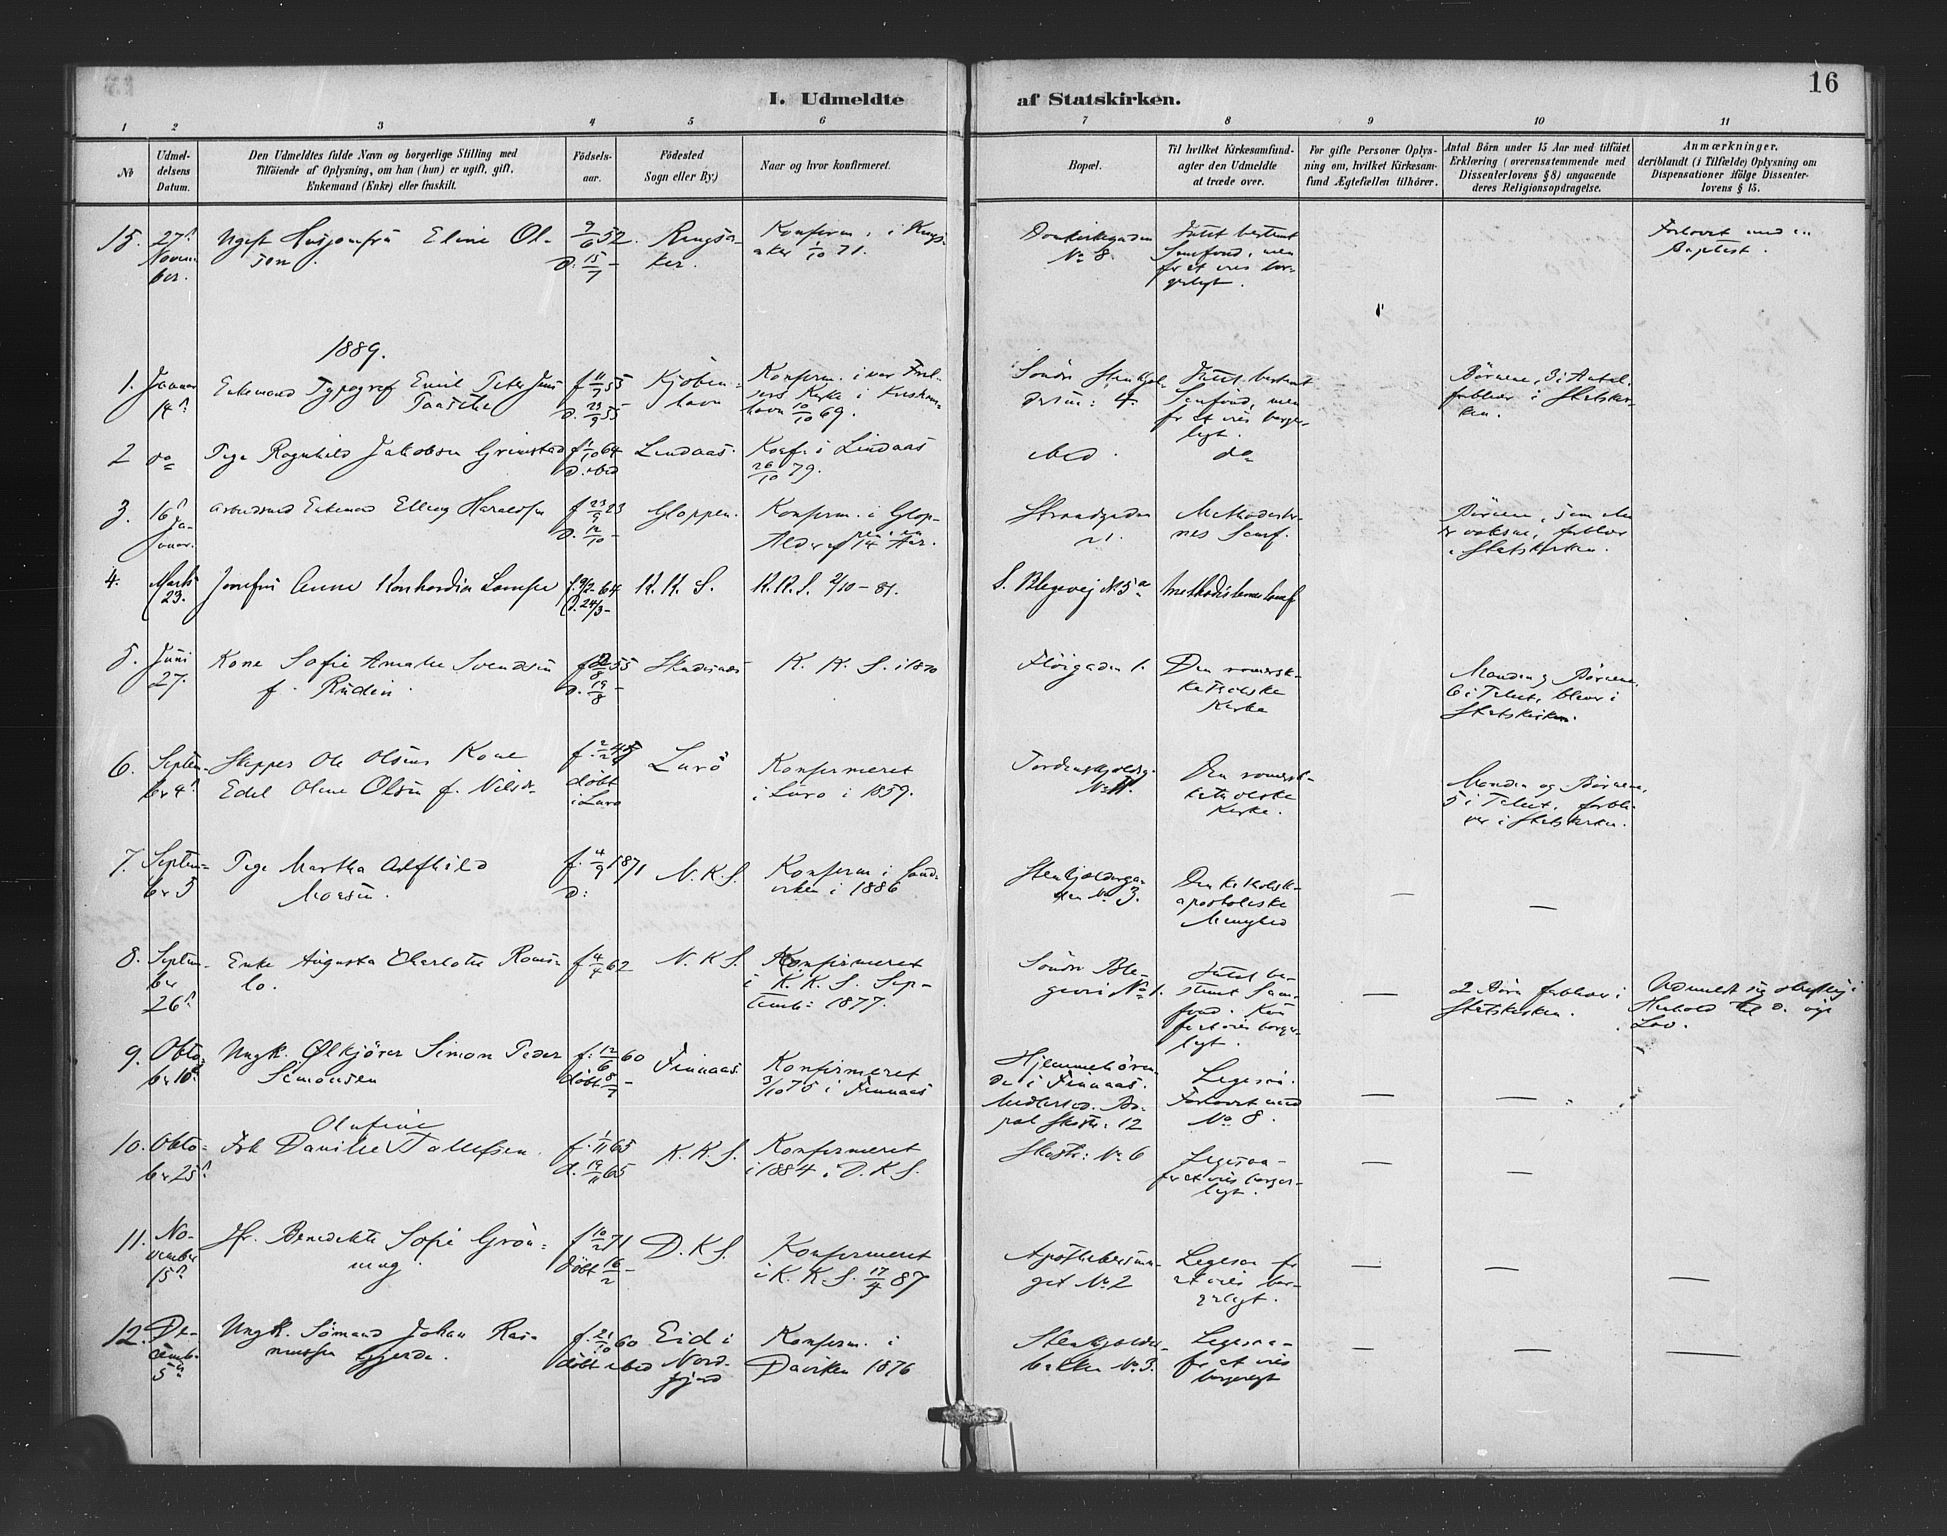 16
I. Udmeldte af Statskirken.
1 2 3 4 5 6 7 8 9 10 11
No
Udmeldelsens Datum.
Den Udmeldtes fulde Navn og borgerlige Stilling med
Tilföiende af Oplysning, om han (hun) er ugift, gift,
Enkemand (Enke) eller fraskilt.
Födselsaar.
Födested
Sogn eller By.)
Naar og hvor konfirmeret.
Bopæl.
Til hvilket Kirkesamfund
agter den Udmeldte
at træde over.
For gifte Personer Oplysning
om, hvilket Kirkesamfund
Ægtefællen tilhörer.
Antal Börn under 15 Aar med tilföiet
Erklæring (overensstemmende med
Dissenterlovens § 8) angaaende
deres Religionsopdragelse.
Anmærkninger,
deriblandt (i Tilfælde) Oplysning om
Dispensationer ifölge Dissenterlovens § 15.
15. 27 November. Ugift Husjomfru Eline Olsen 9/6 52. D. 15/7 - Ringsaker. Konfirm. i Ringsaker 1/10 71. Domkirkegaden No 8. Intet bestemt Samfund, men for at vies borgerligt. Forlovet med en Baptist.
1889.
1. Januar 14 Enkemand Typograf Emil Peter f 11/9 55 D. 23/9 55 Kjöbenhavn Konfirm. i vor Frelsers Kirke i 10/10 69. Söndr 4. Intet bestemt Samfund, men for at vies borgerligt. Börnene, 3 i Antal, forbliver i Statskirken.
2 do Pige Ragnhild Jakobsen Grimstad f 1/10 64 D. ibid Lindaas. Konf. i Lindaas 26/10 79. ibid. do
3. 16 Januar. Enkemand Elling Haraldsen f 23/9 23 D. 12/10 - Gloppen. Konfirm. i Gloppen i en Alder af 14 Aar. Strandgaden 21. Methodisternes Samf. Börnene, som alle er voksne, forbliver i Statskirken.
4. Marts 23. Jomfru Anne Konkordia Lampe f. 9/2 64 D. 24/3 - K. K. S. K. K. S. 2/10 - 81. S. Blegevej N. 5 a Methodisternes Samf
5. Juni 27. Kone Sofie Amalie Svendsen f. Rüdin. 55 D. 19/8 - K. K. S. i 1870 Flöigaden 1. Den romersk-katholske Kirke Manden og Börnene, 6 i Tallet, bliver i Statskirken.
6. September 4 Skipper Ole Olsens Kone Edel Oline Olsen f. Nilsdr. f. 2/2 döbt i Lurö Lurö Konfirmeret i Lurö i 1859. Tordenskjoldsg. No 11. Den romersk-katholske Kirke. Manden og Börnene, 5 i Tallet, forbliver i Statskirken.
7. September 5 Pige Martha Alfhild Monsen. f. 4/9 1871 D: N. K. S. Konfirm. i Sandviken i 1886 Stenkjeldergaden No 3. Den katholsk-apostoliske Menighed — —
8. September 26 Enke Augusta Charlotte f 4/4 62 N. K. S. Konfirmeret i K. K. S. Septemb: 1877. Söndre Blegevei No 1. Intet bestemt Samfund. Kun for at vies borgerligt. — 2 Börn forbliver i Statskirken. Udmeldt sig i Henhold til d. nye Lov.
9. Oktober 10 Ungk. Ølkjörer Simon Peder Simonsen f: 12/6 60 döbt 8/7 - Finnaas. Konfirmeret 3/10 75 i Finnaas Hjemmehörende i Finnaas. 12 Ligesaa. Forlovet med No 8. — —
10. Oktober 25 Frk Danike Olufine Tollefsen. f. 1/11 65 D. 19/11 65 K. K. S. Konfirmeret i 1884 i D. K. S. No 6 Ligesaa - for at vies borgerligt. — —
11. November 15 Jfr. Benedikte Sofie Gröning. f 10/2 71 döbt 16/2 - D. K. S. Konfirmeret i K. K. S. 17/4 87 No 2 Ligesaa for at vies borgerligt. — — —
12. December 5 Ungk. Sömand Johan Rasmussen f. 21/10 60 döbt ibid Eid i Nordfjord Konfirm. i Daviken 1876 Stenkjelderbakken No 3. Ligesaa - for at vies borgerligt — — —